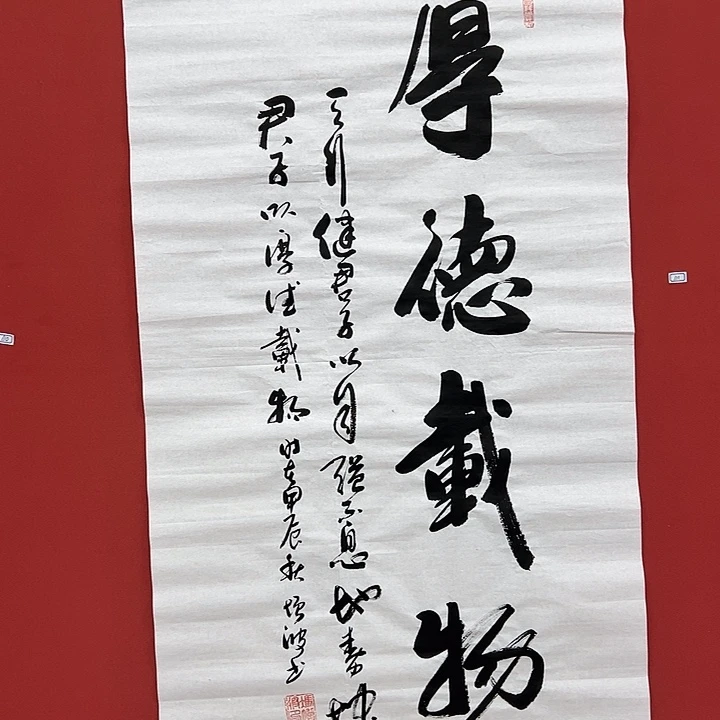 厚德载物
天行健君子以自强不息地势坤
君子以厚德载物时在甲辰秋